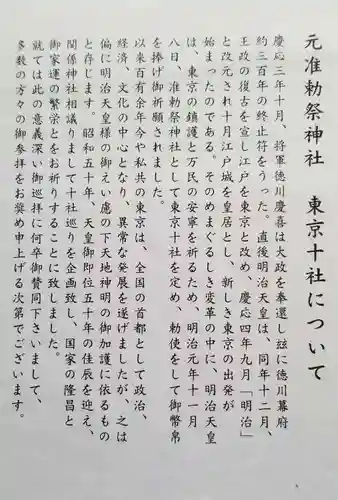 元准勅祭神社　東京十社について
慶応三年十月、将軍徳川慶喜は大政を奉還し茲に徳川幕府
約三百年の終止符をうった。直後明治天皇は、同年十二月、
王政の復古を宣し江戸を東京と改め、慶応四年九月「明治」
と改元され十月江戸城を皇居とし、新しき東京の出発が
始まったのである。そのめまぐるしき変革の中に、明治天皇
は、東京の鎮護と万民の安寧を祈るため、明治元年十一月
八日、准勅祭神社として東京十社を定め、勅使をして御幣帛
を捧げ御祈願されました。
以来百有余年今や私共の東京は、全国の首都として政治、
経済、文化の中心となり、異常な発展を遂げましたが、之は
偏に明治天皇様の御えい慮の下天地神明の御加護に依るもの
と存じます。昭和五十年、天皇御即位五十年の佳辰を迎え、
関係神社相議りまして十社巡りを企画致し、国家の隆昌と
御家運の繁栄とをお祈りすることに致しました。
就ては此の意義深い御巡拝に何卒御賛同下さいまして、
多数の方々の御参拝をお奨め申上げる次第でございます。